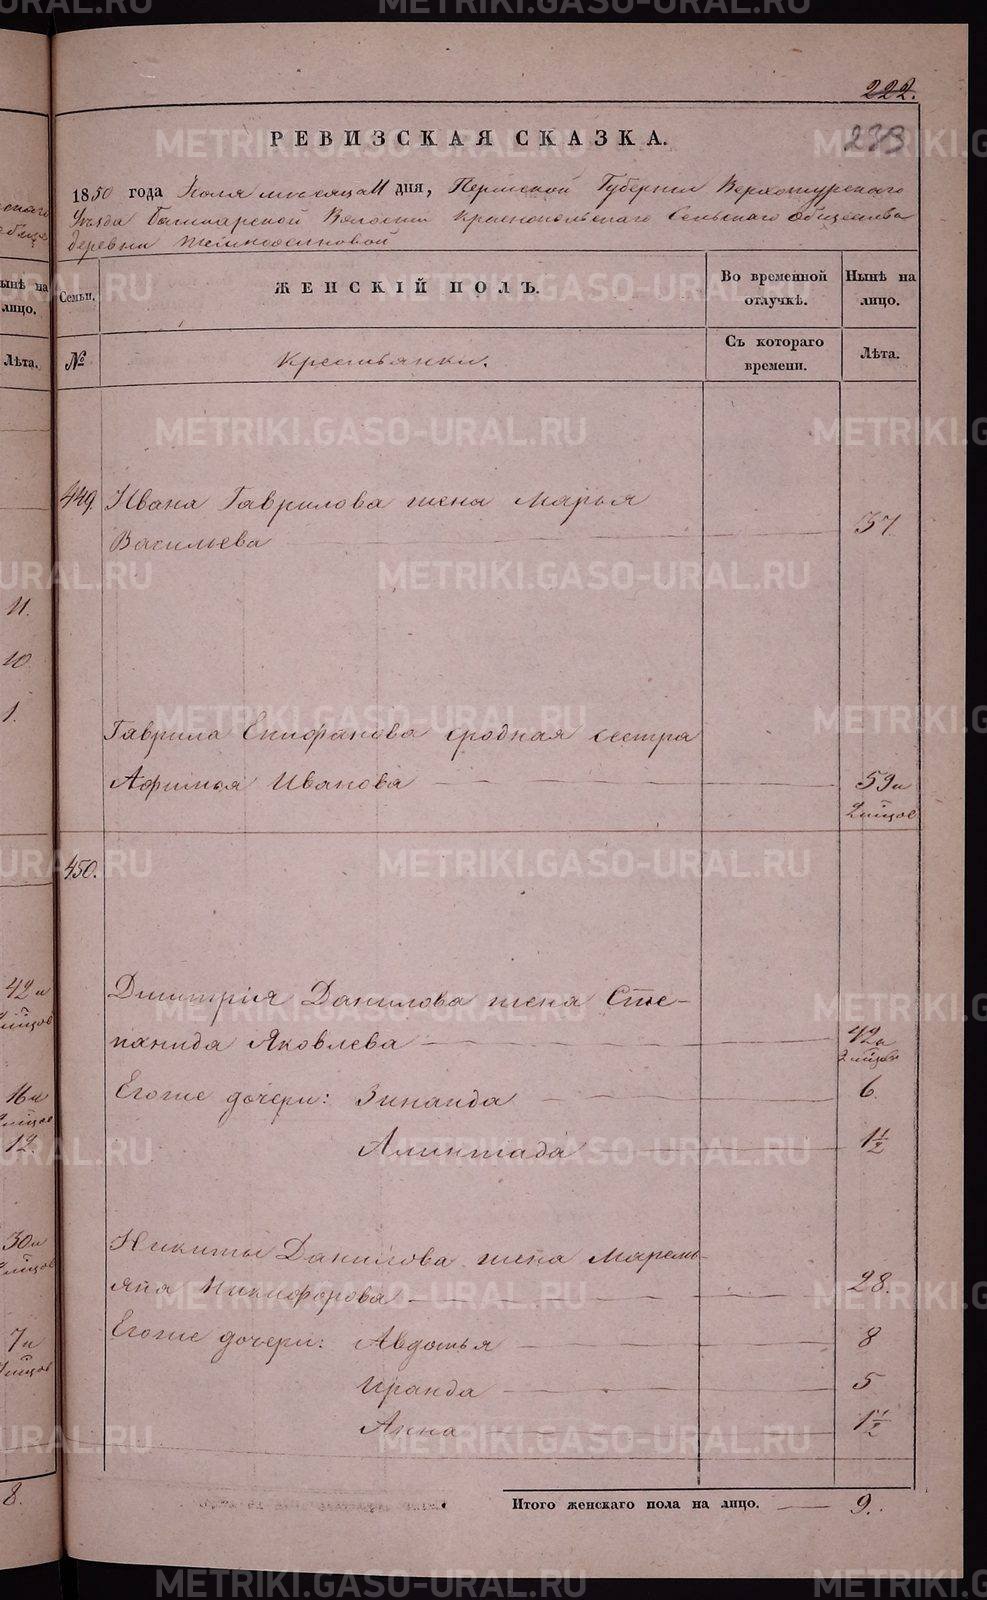 222.
233
РЕВИЗСКАЯ СКАЗКА.
1850 года Іюля мѣсяца 11 дня, Пермской Губерніи Верхотурскаго
Уѣзда Башкарской Волости Краснопольскаго Сельскаго Общества
деревни
Семьи.
ЖЕНСКІЙ ПОЛЪ.
Во временной отлучкѣ.
Нынѣ на лицо.
№
Крестьянки.
Съ котораго времени.
Лѣта.
449. Ивана Гаврилова жена Марья
Васильева 37.
Гаврила Епифанова сродная сестра
Афимья Иванова 59 и
2 мѣцов
450.
Дмитрія Данилова жена Сте-
панида Яковлева 42 и
2 мѣцов
Егоже дочери: Зинаида 6.
1½
Никиты Данилова жена Маремь-
яна Никифорова 28.
Егоже дочери: Авдотья 8
Ираида 5
Анна 1½
Итого женскаго пола на лицо. 9.
нынѣ на лицо.
Лѣта.
11.
10.
1.
42 и
16 и
12.
30 и
7 и
8.
METRIKI.GASO-URAL.RU